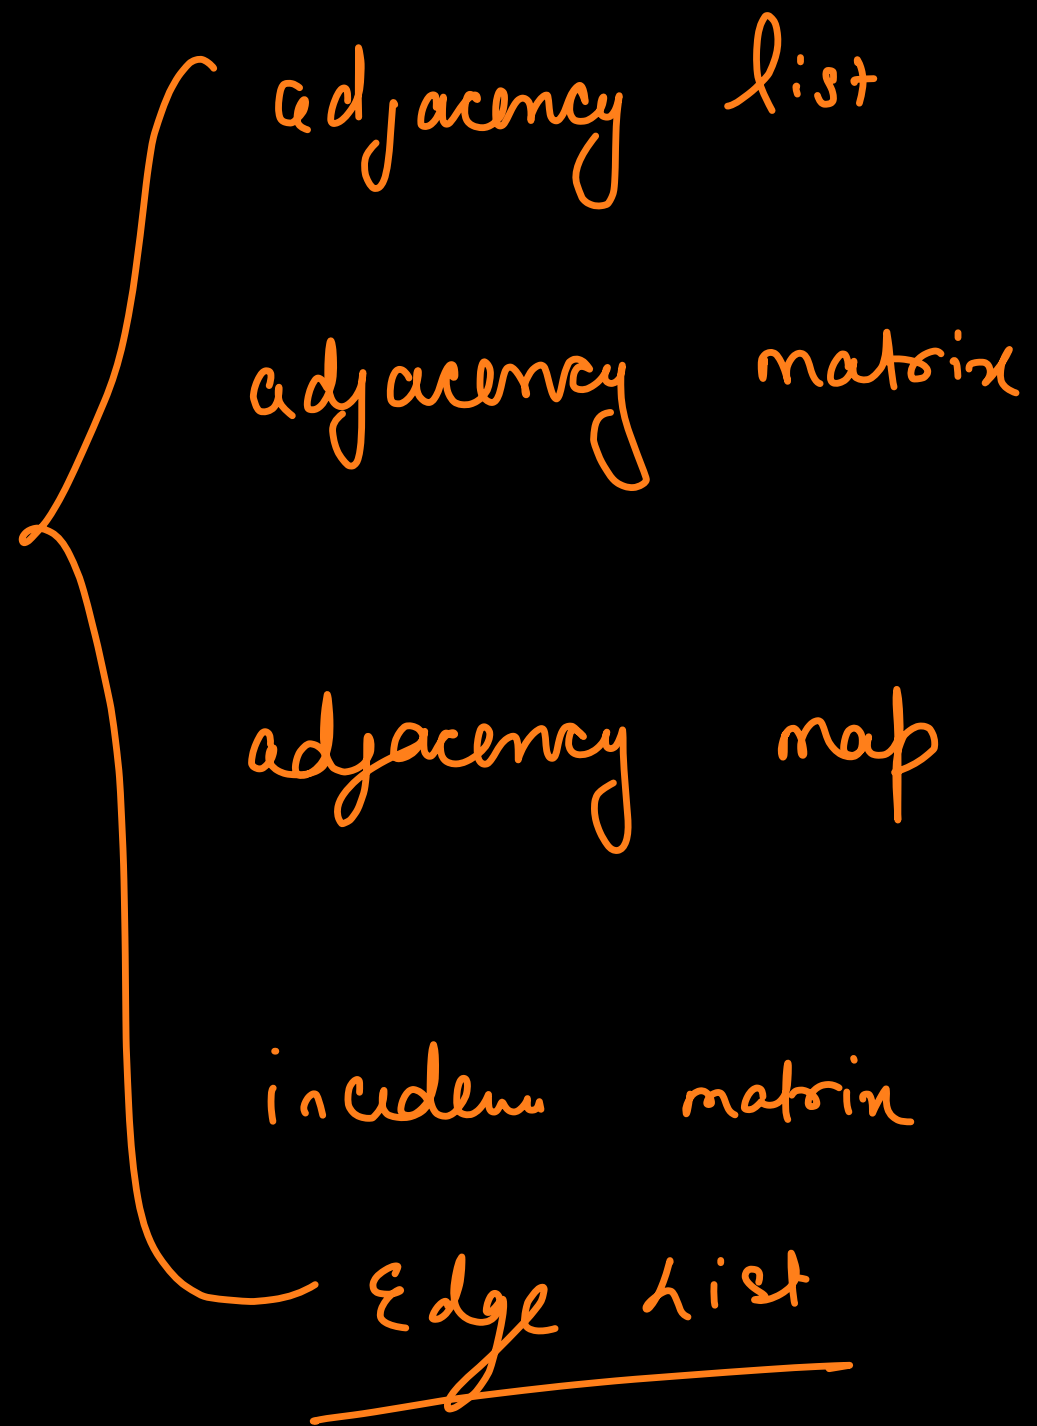 adjacency list
adjacency matrix
adjacency map
incidence matrix
Edge List